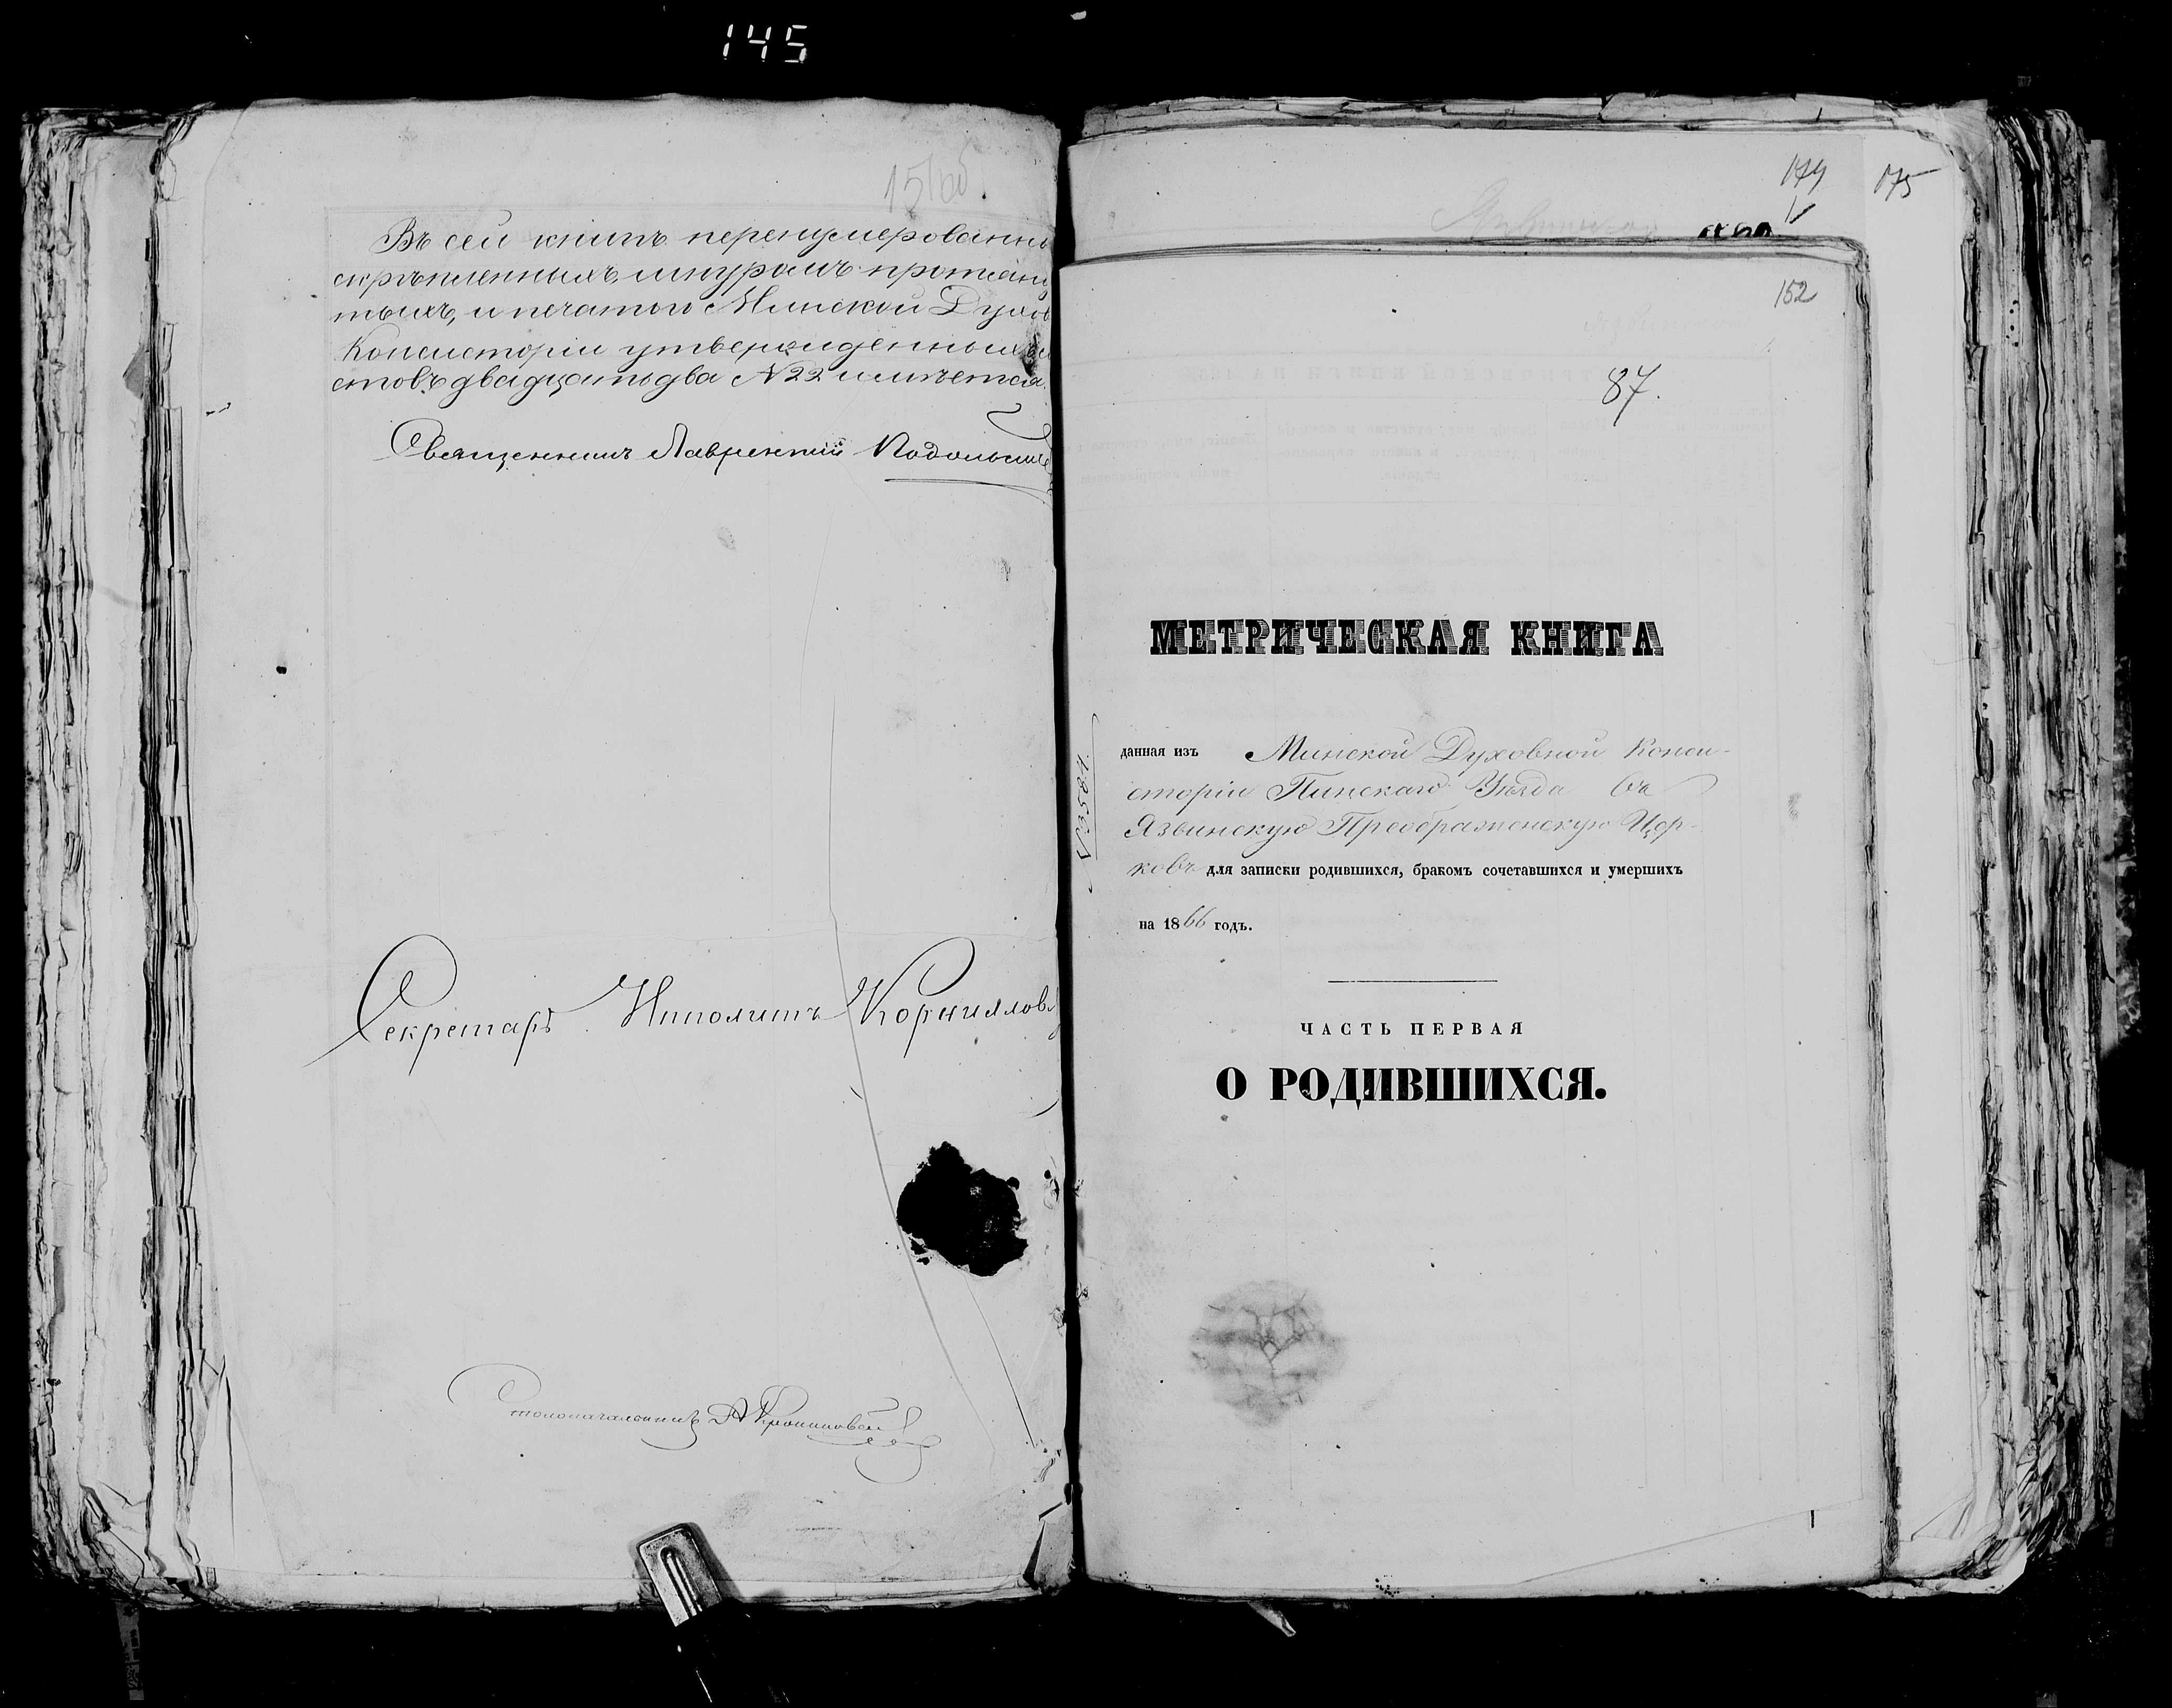 145
151об.
Въ сей книгѣ перенумерованны
скрѣпленныхъ шнуромъ протяну
тыхъ, и печатью Минской Духов
Консисторіи утвержденныхъ ли
стовъ двадцатьдва N 22 имѣется.
Священникъ Лаврентій Подольскій
Секретарь Ипполитъ Корниллов
Столоначальникъ
174
175
152
87.
МЕТРИЧЕСКАЯ КНИГА
N 3581.
данная изъ Минской Духовной Конси-
сторіи Пинскаго Уѣзда въ
Язвинскую Преображенскую Цер-
ковь для записки родившихся, бракомъ сочетавшихся и умершихъ
на 1866 годъ.
ЧАСТЬ ПЕРВАЯ
О РОДИВШИХСЯ.